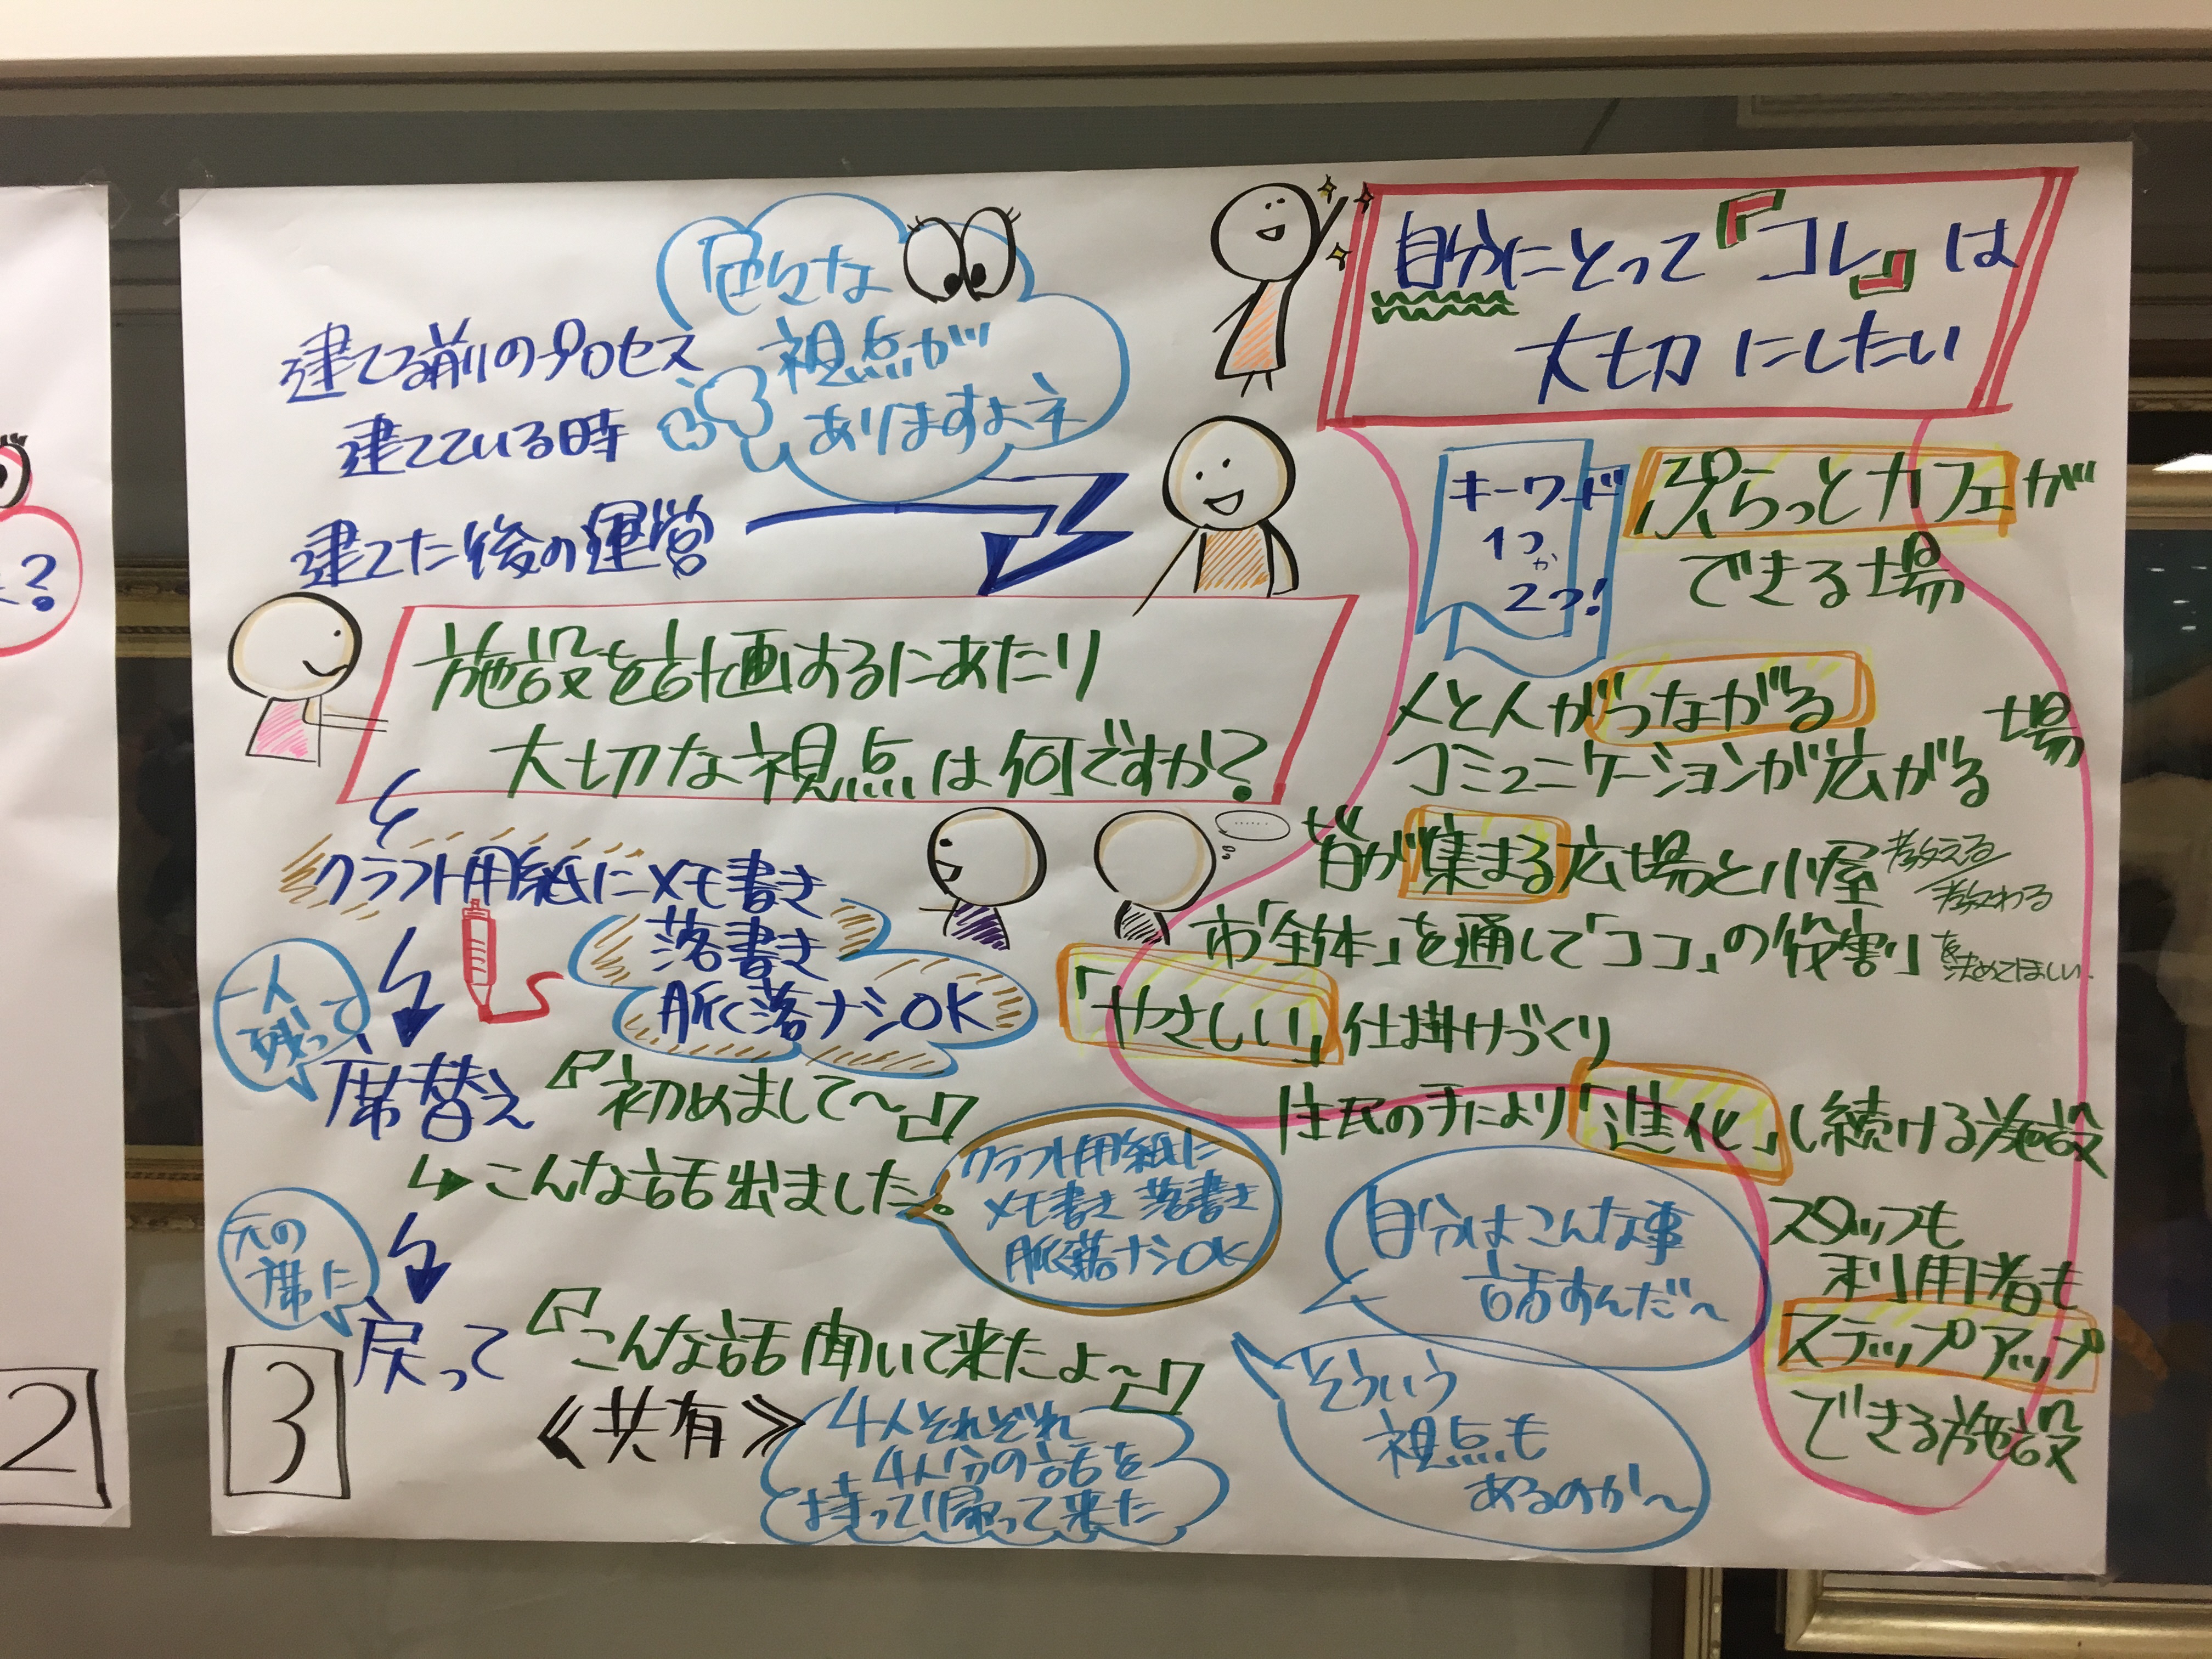 色々な
視点が
ありますよネ
建てる前のプロセス
建てている時
建てた後の運営
施設を計画するにあたり
大切な視点は何ですか?
クラフト用紙にメモ書き
落書き
脈落ナシOK
一人
残って
席替え『初めまして〜』
こんな話出ました。
クラフト用紙に
メモ書き 落書き
脈落ナシOK
元の
席に
戻って『こんな話聞いて来たよ〜』
《共有》
4人それぞれ
4人分の話を
持って帰って来た
3
自分にとって『コレ』は
大切にしたい
キーワード
1つ
か
2つ!
ぷらっとカフェが
できる場
人と人がつながる
コミュニケーションが広がる
場
皆が集まる広場と小屋
教える
教わる
市「全体」を通して「ココ」の役割
を決めてほしい
「やさしい」仕掛けづくり
住民の手により「進化」し続ける施設
スタッフも
利用者も
ステップアップ
できる施設
自分はこんな事
話すんだ〜
そういう
視点も
あるのか〜
?
2